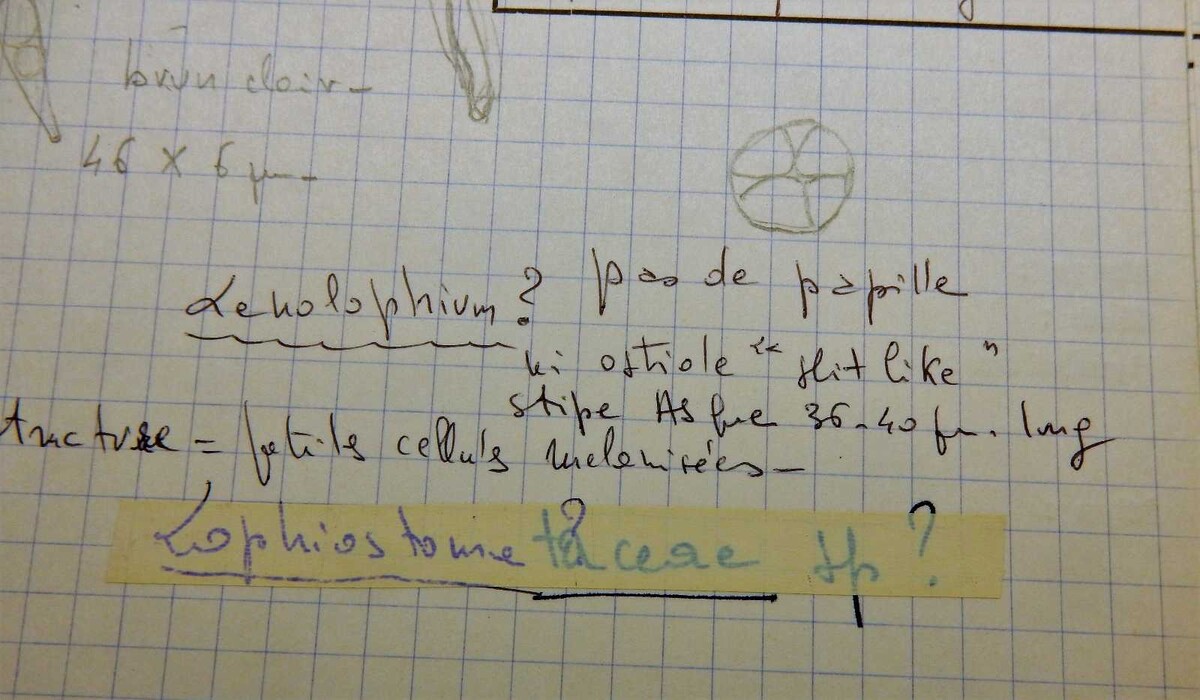 brun clair -
46 x 6 µm -
Xenolophium? pas de papille
ni ostiole "slit like"
stipe Asque 36-40 µm. long
tructure = petites cellules mélanisées -
Lophiostometaceae sp?